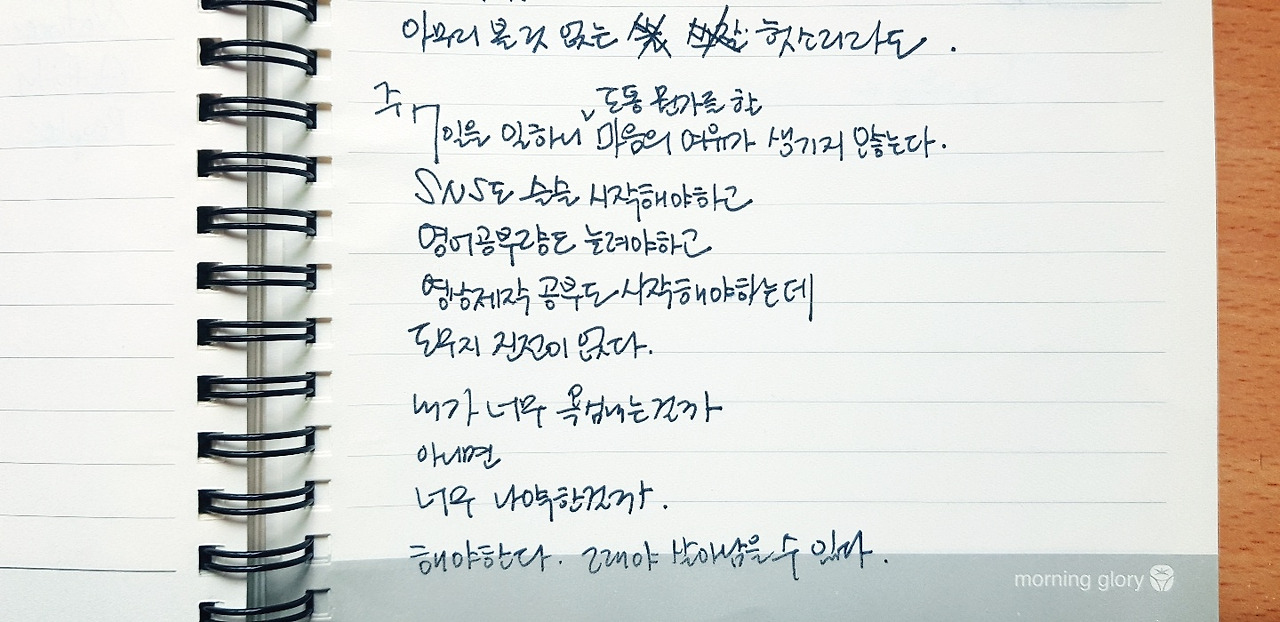 아무리 볼 것 없는 헛소리라도.
도통 뭔가를 할
주 7일을 일하니 마음의 여유가 생기지 않는다.
SNS도 슬슬 시작해야하고
영어공부량도 늘려야하고
영상제작 공부도 시작해야하는데
도무지 진전이 없다.
내가 너무 욕심내는걸까
아니면
너무 나약한걸까.
해야한다. 그래야 살아남을 수 있다.
morning glory